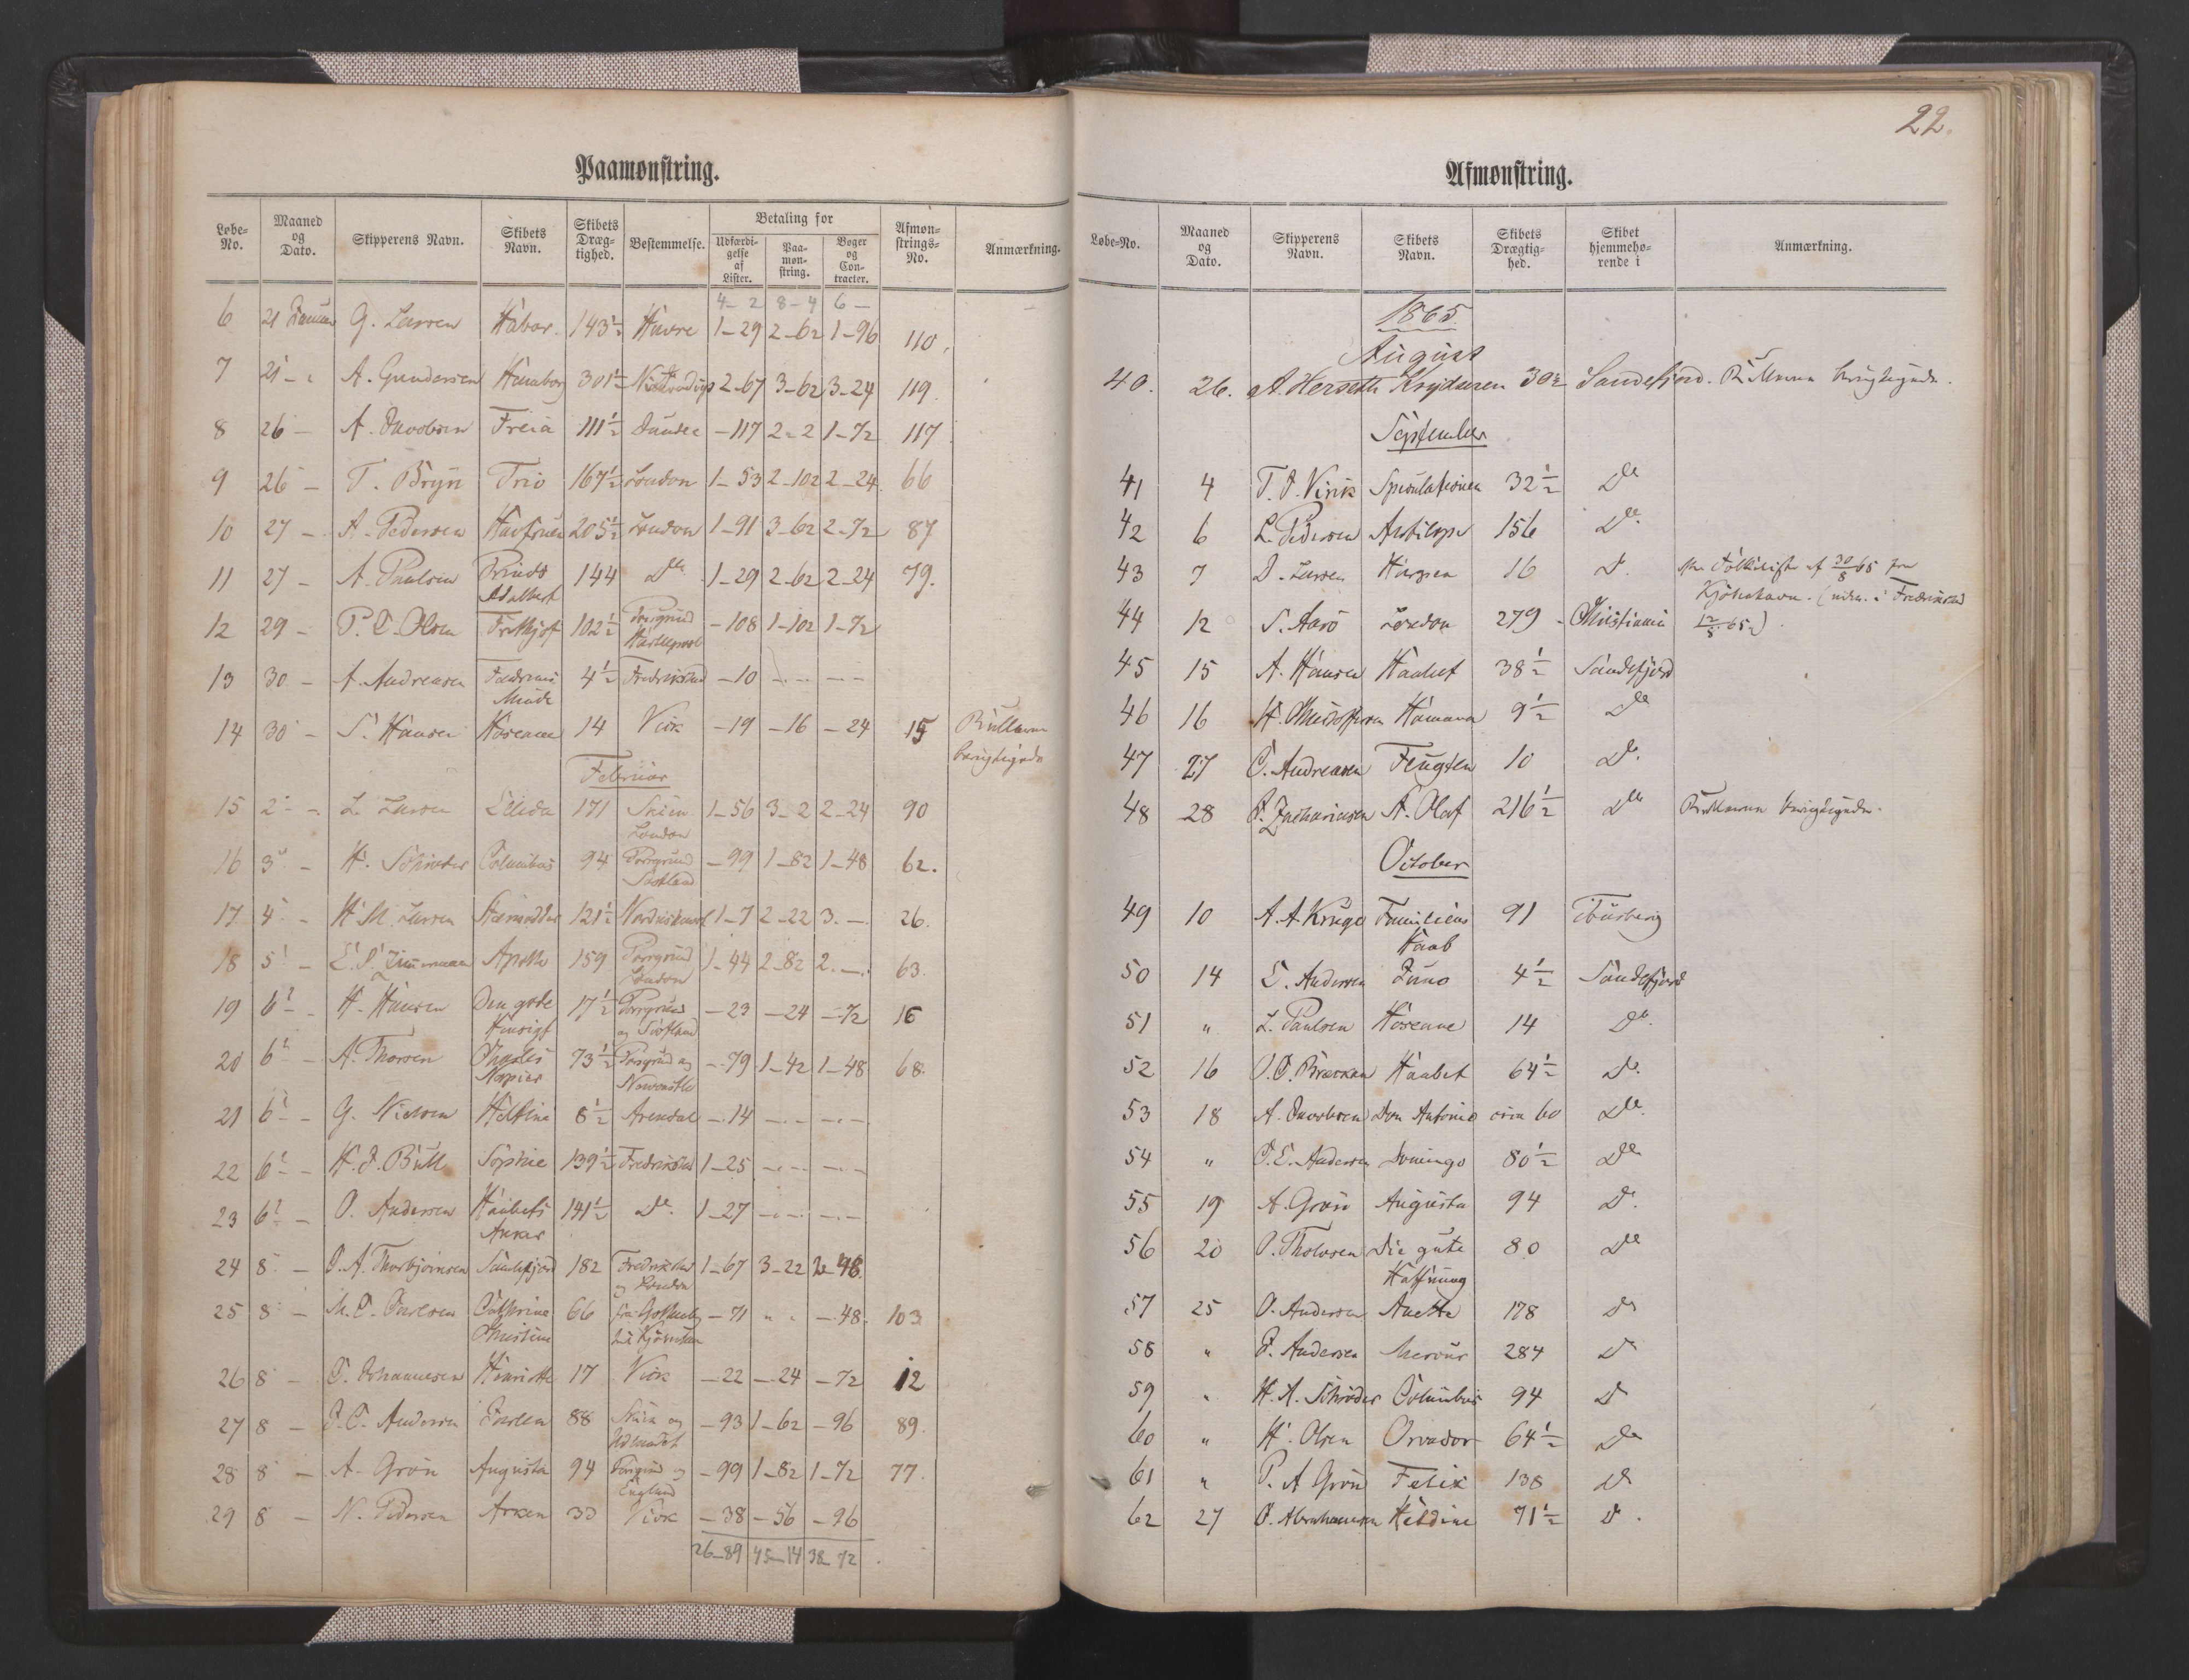 Paamønstring.
Løbe-No. Maaned og Dato. Skipperens Navn. Skibets Navn. Skibets Dræg-tighed. Bestemmelse. Betaling for Udfærdi-gelse af Lister. Paa-møn-string. Bøger og Con-tracter. Afmøn-strings-No. Anmærkning.
4-2 8-4 6-
6 21 Januar G. Larsen Habor 143½ Havre 1-29 2-62 1-96 110.
7 21 - A. Gundersen Hamborg 301½ 2-67 3-62 3-24 119.
8 26 - A. Jacobsen Freia 111½ Dundee -117 2-2 1-72 117
9 26 - T. Bryn Trio 167½ London 1-53 2-102 2-24 66
10 27 - A. Pedersen Havfruen 205½ London 1-91 3-62 2-72 87
11 27 - A. Paulsen Prinds Adalbert 144 Do 1-29 2-62 2-24 79.
12 29 - P. C. Olsen Frithjof 102½ Porsgrund Hartlepool -108 1-102 1-72
13 30 - A. Andreasen Fædrenes Minde 4½ Fredrikstad -10 - -
14 30 - S. Hansen Hoseanne 14 Visk -19 -16 -24 15 Rullerne berigtigede
Februar
15 2 - L. Larsen Ellida 171 Skien London 1-56 3-2 2-24 90
16 3 - H. Schrøder Columbus 94 Porsgrund Skotland -99 1-82 1-48 62.
17 4 - H. M. Larsen 121½ 1-7 2-22 3.-. 26.
18 5 - Apollo 159 Porsgrund London 1-44 2-82 2.-. 63.
19 6 - H. Hansen Den gode Hensigt 17½ Porsgrund og Skotland -23 -24 -72 16
20 6 - A. Thorsen Charles Napier 73½ Porsgrund og Newcastle -79 1-42 1-48 68.
21 6 - G. Nielsen Heltine 8½ Arendal -14 - -
22 6 - H. J. Bull Sophie 139½ Fredrikstad 1-25 - -
23 6 - O. Andersen Haabets Anker 141½ Do. 1-27 - -
24 8 - O. A. Thorbjørnsen Sandefjord 182 Fredrikstad og London 1-67 3-22 2-48.
25 8 - M. C. Carlsen Cathrine Christine 66 fra Gothenborg til Kjøbenhavn -71 " " -48. 103
26 8 - C. Johannesen Henriette 17 Visk -22 -24 -72 12
27 8 - J. C. Andersen 88 Skien og Udlandet -93 1-62 -96 89.
28 8 - A. Grøn Augusta 94 Porsgrund og England -99 1-82 1-72 77.
29 8 - N. Pedersen Arken 33 Visk -38 -56 -96
26-89 45-14 38-72
22.
Afmønstring.
Løbe-No. Maaned og Dato. Skipperens Navn. Skibets Navn. Skibets Drægtig-hed. Skibet hjemmehø-rende i Anmærkning.
1865
August
40. 26. A. Herseth Krydseren 30½ Sandefjord. Rullerne berigtigede.
September
41 4 T. O. Virik Speculationen 32½ Do
42 6 L. Pedersen Antilope 156 Do.
43 7 O. Larsen 16 Do. af 30/8 65 fra
Kjøbenhavn. (udm. i Fredrikstad
44 12 S. Aarø London 279 - Christiania 12/5 65)
45 15 A. Hansen Haabet 38½ Sandefjord
46 16 H. Christoffersen 9½ Do
47 27 C. Andreasen 10 Do.
48 28 Zachariasen St. Olaf 216½ Do Rullerne berigtigede.
October
49 10 A. A. Kruge Familiens Haab 91 Tønsberg
50 14 E. Andersen Juno 4½ Sandefjord
51 " L. Paulsen Hoseanne 14 Do.
52 16 Haabet 64½ Do.
53 18 A. Jacobsen Don Antonio circa 60 Do.
54 " C. E. Andersen Domingo 80½ Do
55 19 A. Grøn Augusta 94 Do.
56 20 O. Tholvsen Die gute Hoffnung 80 Do
57 25 O. Andersen Anette 178 Do
58 " Andersen Mercur 284 Do
59 " H. A. Schrøder Columbus 94 Do
60 " H. Olsen 64½ Do
61 " P. A. Grøn Felix 138 Do
62 27 Abrahamsen Heldine 71½ Do.